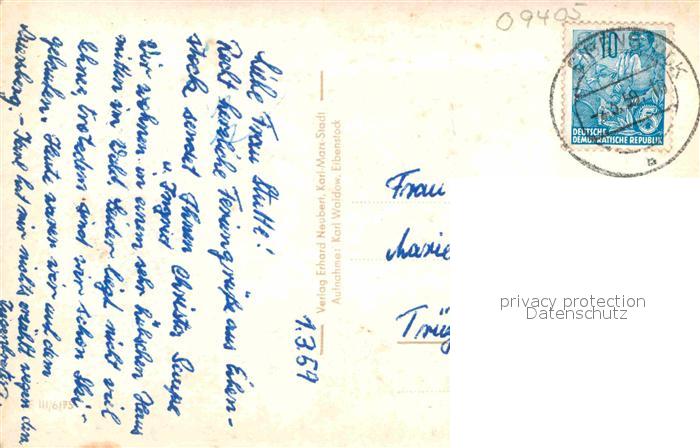 09405
10
DEUTSCHE
DEMOKRATISCHE REPUBLIK
Liebe Frau
Recht herzliche Feriengrüße aus Eiben-
stock sendet Ihnen Christa
u. Ingrid
Wir wohnen in einem sehr hübschen Haus
mitten im Wald. Leider liegt nicht viel
Schnee, trotzdem sind wir schon Ski-
gelaufen. Heute waren wir auf dem
Auersberg. - Karl hat mir nichts erzählt wegen dem
1.3.59
Verlag Erhard Neubert, Karl-Marx-Stadt
Aufnahme: Karl Waldow, Eibenstock
III/6/75
Frau
Marie
privacy protection
Datenschutz